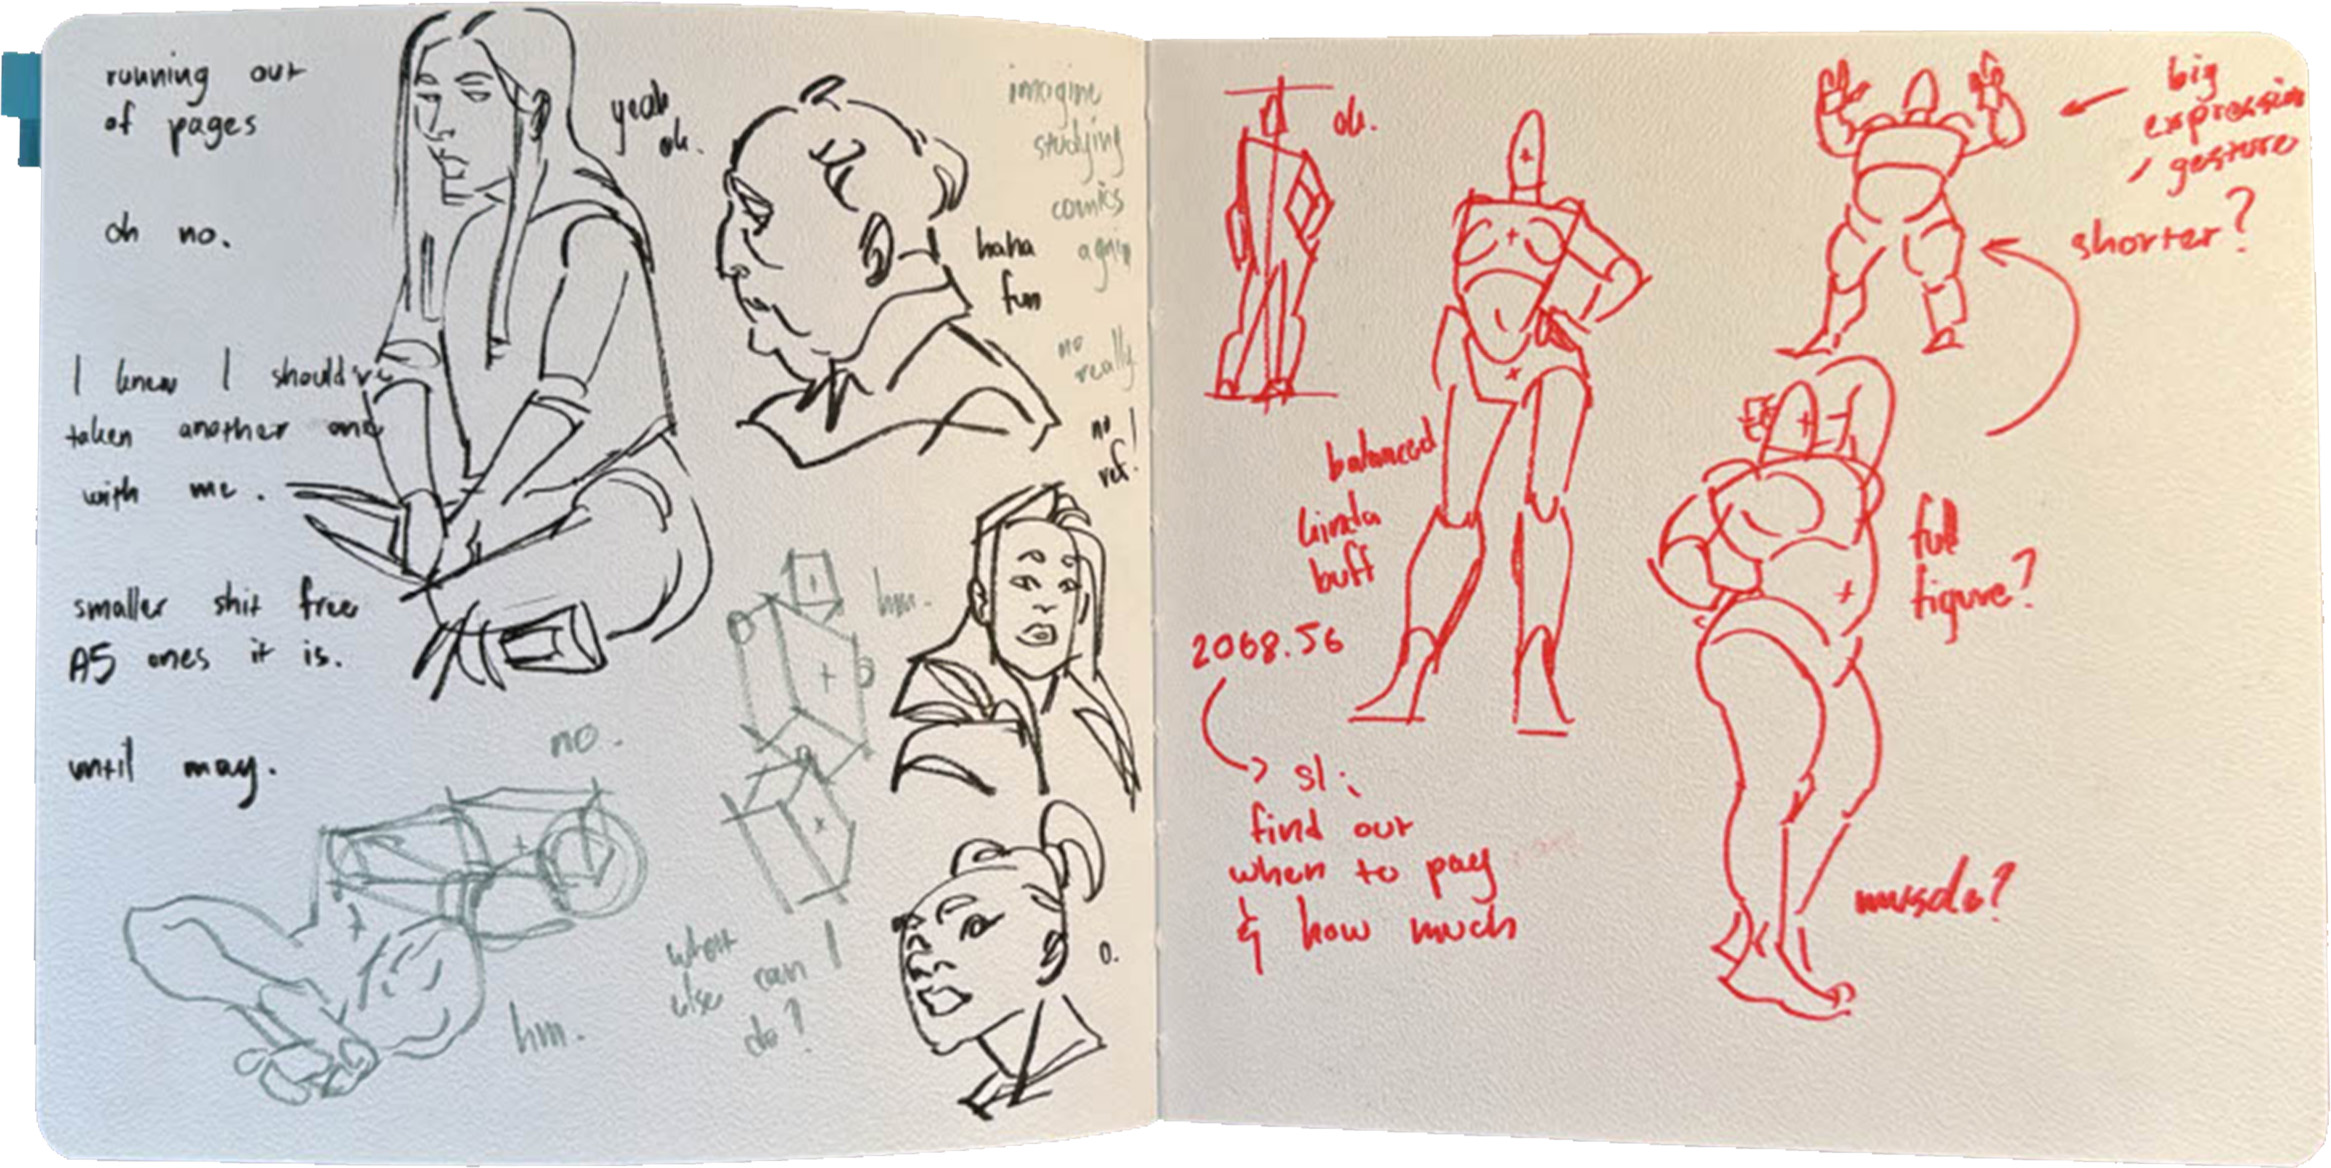 running out
of pages
oh no.
I knew I should've
taken another one
with me.
smaller shit free
A5 ones it is.
until may.
yeah
ok.
imagine
studying
comics
again
haha
fun
no
really
no
ref!
hm.
no.
hm.
what
else can I
do?
o.
ok.
balanced
kinda
buff
2068.56
sl;
find out
when to pay
& how much
big
expression
/ gesture
shorter?
full
figure?
muscle?